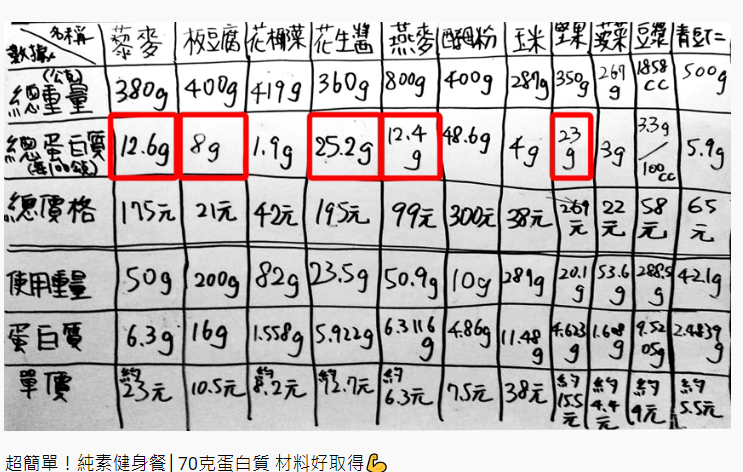 名稱 藜麥 板豆腐 花椰菜 花生醬 燕麥 酵母粉 玉米 堅果 菠菜 豆漿 青豆仁
數據
(公克)
總重量 380g 400g 419g 360g 800g 400g 287g 350g 267g 1858cc 500g
總蛋白質 12.6g 8g 1.9g 25.2g 12.4g 48.6g 4g 23g 3g 3.3g/100cc 5.9g
(每100公克)
總價格 175元 21元 42元 195元 99元 300元 38元 269元 22元 58元 65元
使用重量 50g 200g 82g 23.5g 50.9g 10g 287g 20.1g 53.6g 288.5g 42.1g
蛋白質 6.3g 16g 1.558g 5.922g 6.3116g 4.86g 11.48g 4.623g 1.608g 9.5205g 2.4839g
單價 約23元 10.5元 約8.2元 約12.7元 約6.3元 7.5元 38元 約15.5元 約4.4元 約9元 約5.5元
超簡單！純素健身餐│70克蛋白質 材料好取得💪